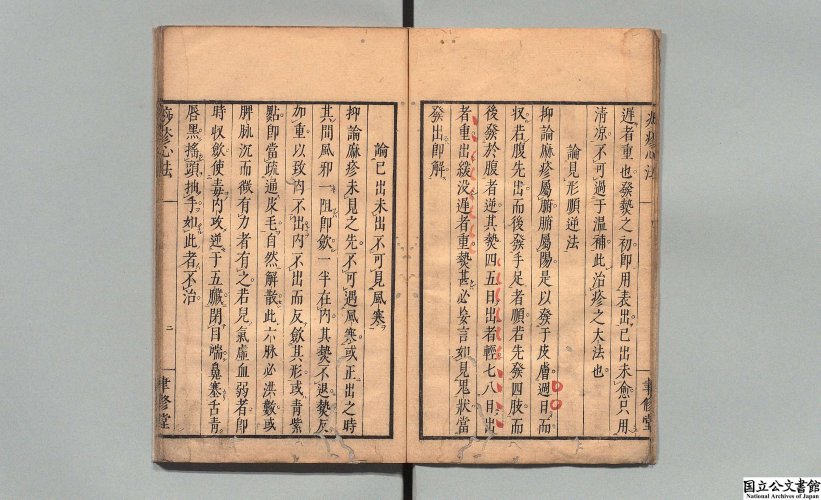 遲者重也發㷫之初即用表出已出未愈只用
清凉不可過于溫補此治疹之大法也
論見形順逆法
抑論麻疹屬腑腑屬陽是以發于皮膚週日而
収若腹先出而後發手足者順若先發四肢而
後發於腹者逆其㷫四五日出者輕七八日出
者重出緩没遲者重㷫甚必妄言如見鬼狀當
發出即解
論已出未出不可見風寒
抑論麻疹未見之先不可遇風寒或正出之時
其間風邪一阻即斂一半在內其㷫不退㷫反
加重以致內不出內不出而反斂其形或青紫
點即當疏通皮毛自然解散此六脉必洪數或
脾脉沉而微有力者有之若兒氣虛血弱者即
時収斂使毒內攻逆于五臟閉目喘鼻塞舌青
唇黑搖頭抽手如此者不治
疹心法
二
聿修堂
国立公文書館
National Archives of Japan